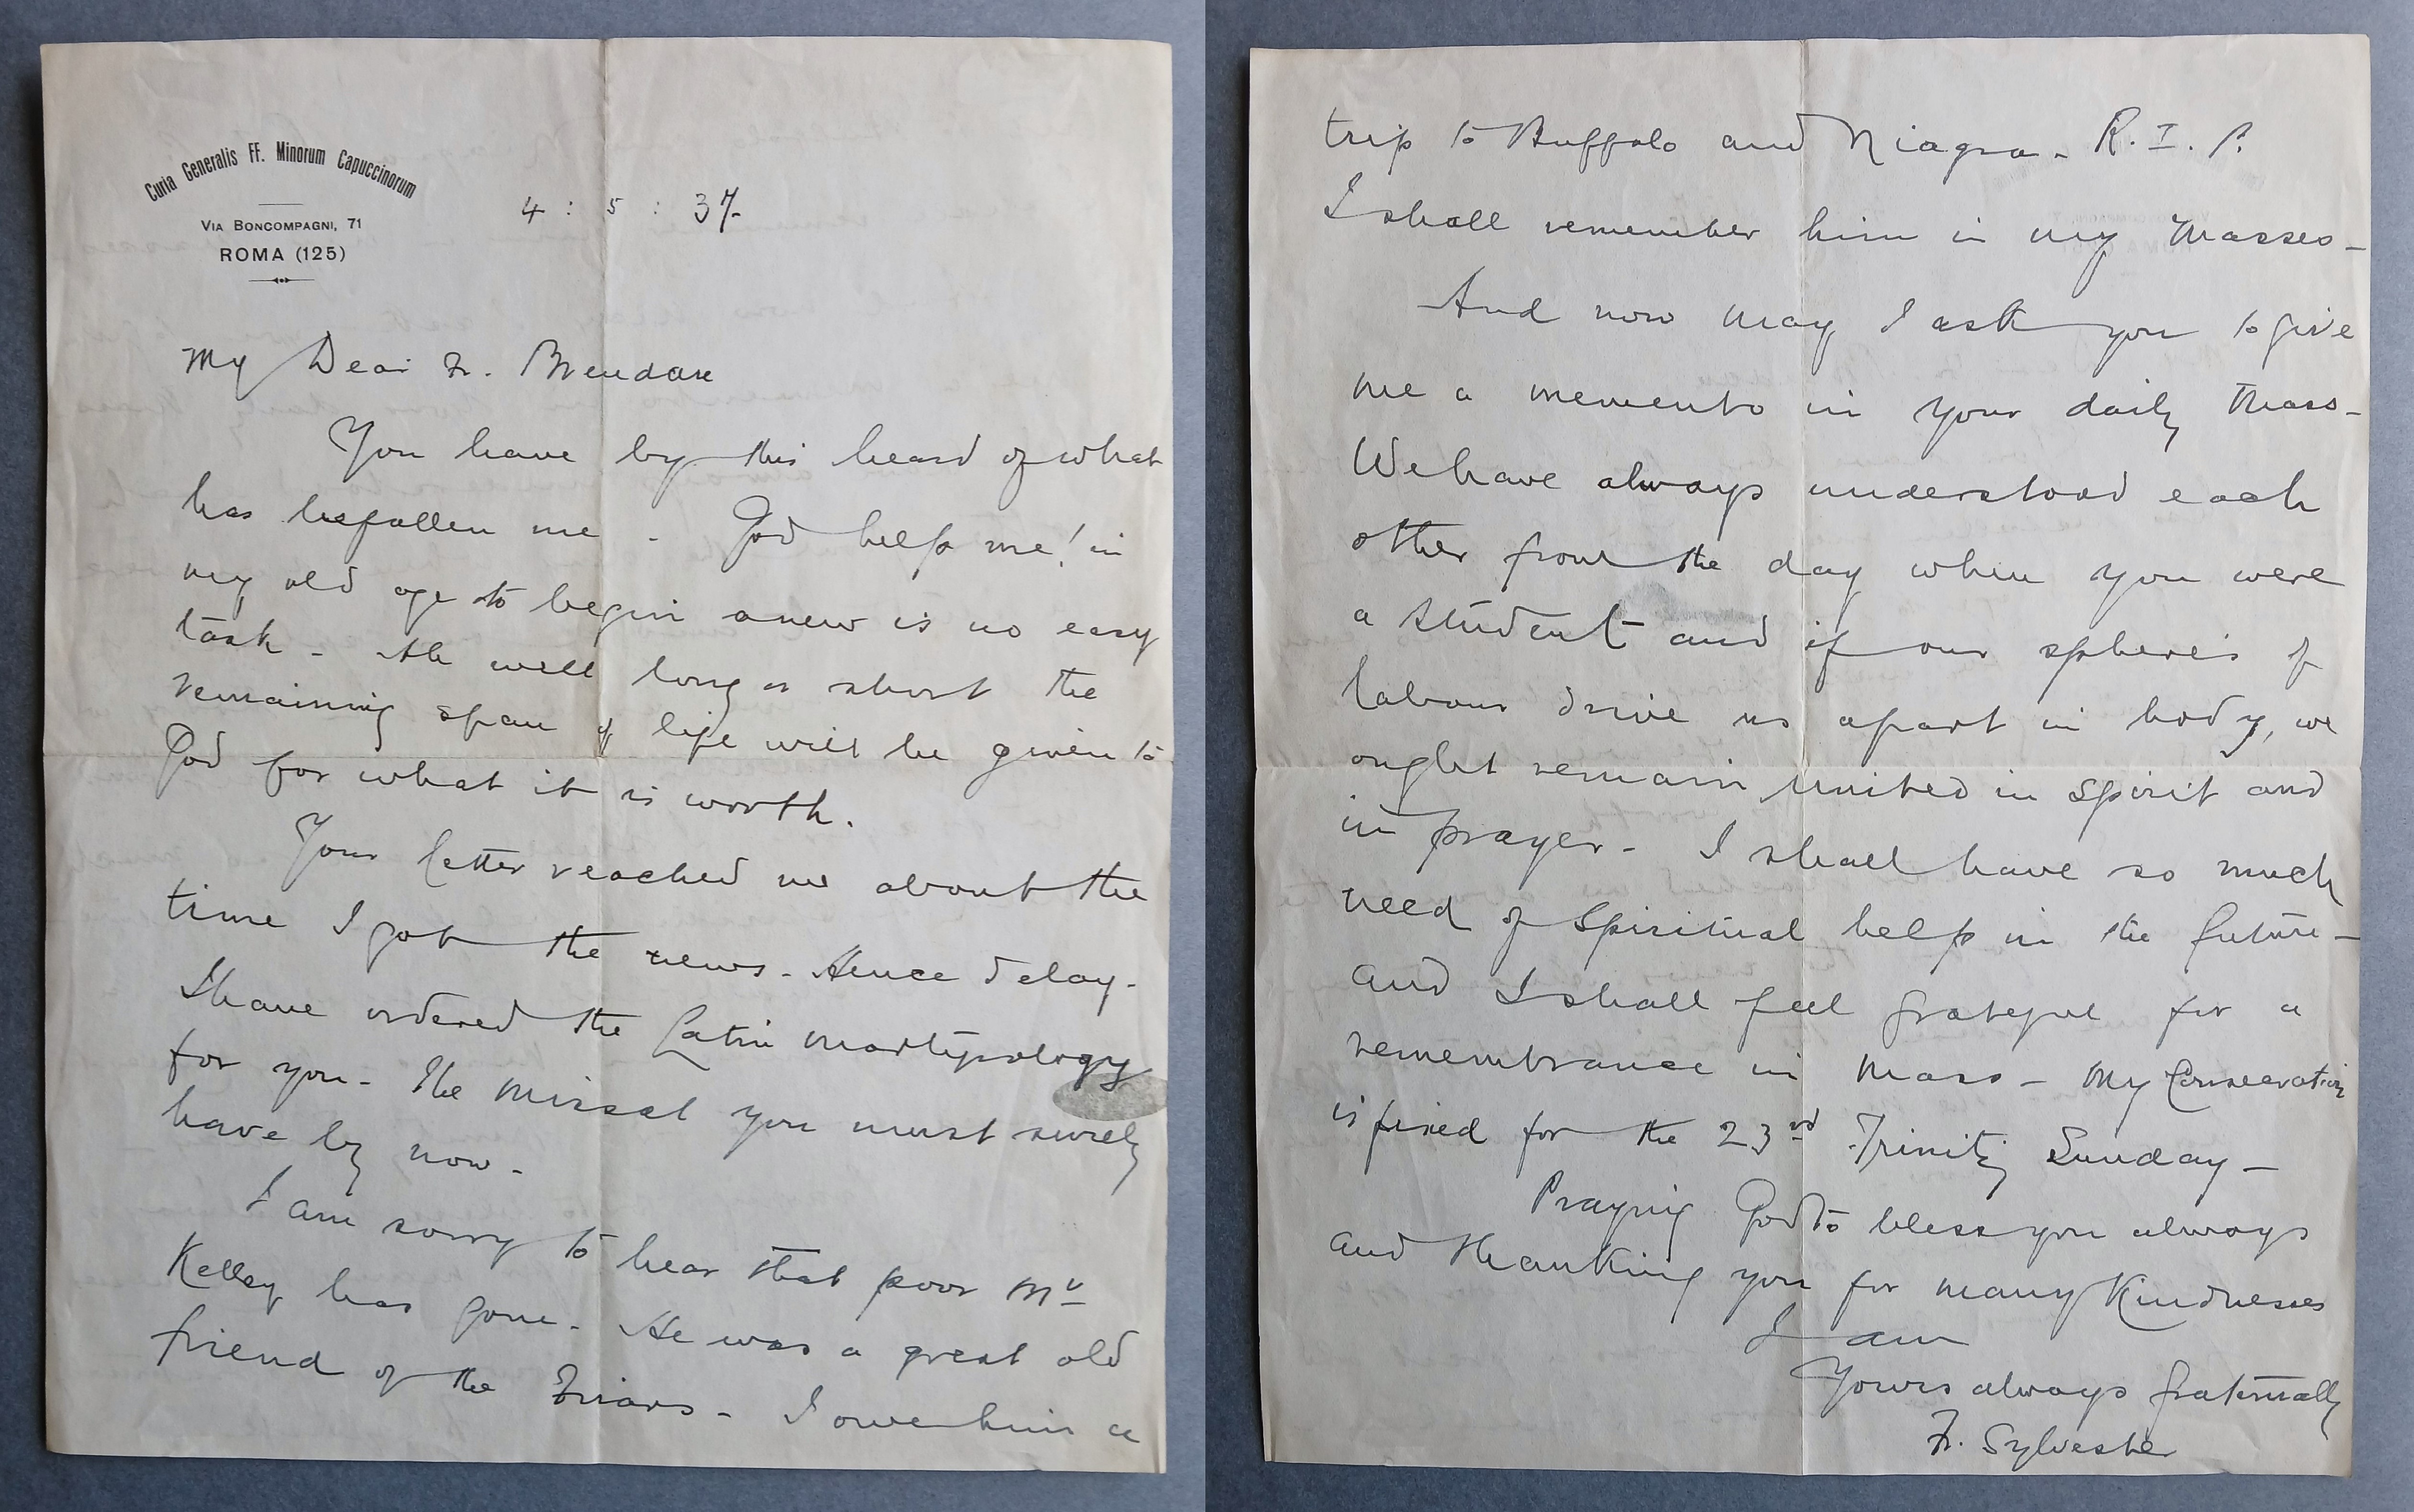 Curia Generalis FF. Minorum Capuccinorum
VIA BONCOMPAGNI, 71
ROMA (125)
4 : 5 : 37
My Dear Fr. Brendan
You have by this heard of what
has befallen me - God help me! in
my old age to begin anew is no easy
task - Ah well long or short the
remaining span of life will be given to
God for what it is worth.
Your letter reached me about the
time I got the news - Hence delay -
I have ordered the Latin Martyrology
for you - The Missal you must surely
have by now -
I am sorry to hear that poor Mr
Kelley has gone - He was a great old
friend of the Friars - I owe him a
trip to Buffalo and Niagra - R. I. P.
I shall remember him in my Masses -
And now may I ask you to give
me a memento in your daily Mass -
We have always understood each
other from the day when you were
a student and if our spheres of
labour drive us apart in body, we
ought remain united in spirit and
in prayer - I shall have so much
need of spiritual help in the future -
and I shall feel grateful for a
remembrance in Mass - My Consecration
is fixed for the 23rd Trinity Sunday -
Praying God to bless you always
and thanking you for many kindnesses
I am
Yours always fraternally
Fr. Sylvester